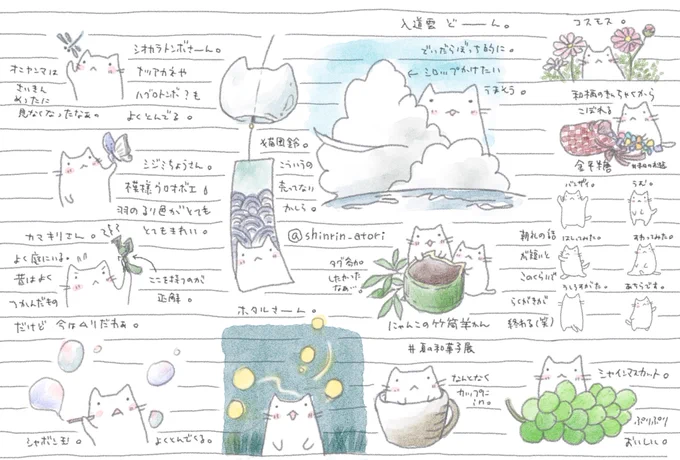 シオカラトンボさーん。
オニヤンマは
さいきん
めったに
見なくなったなぁ。
アツアカネや
ハグロトンボ?も
よくとんでる。
シジミちょうさん。
模様ウロオボエ
羽のるり色がとても
とてもきれい。
カマキリさん。
よく庭にいる。
昔はよく
つかんだもの
だけど 今はムリだねぇ。
ここを持つのが
正解。
シャボン玉
よくとんでくる。
猫風鈴
こういうの
売ってない
かしら。
@shinrin_atori
ホタルさーん。
入道雲 どーーん。
でいだらぼっち的に。
← シロップかけたい
うまそう。
タグ参加
したかった
なぁ…
にゃんこの竹筒羊かん
#夏の和菓子展
なんとなく
カップに
in。
コスモス。
和柄のきんちゃくから
こぼれる
金平糖
バンザイ。
うむ。
朝礼の話
が長いと
このくらい
らくがきが
終わる(笑)
はしってみた。
すわってみた。
うしろすがた。
あちらです。
シャインマスカット。
ぷりぷり
おいしい。